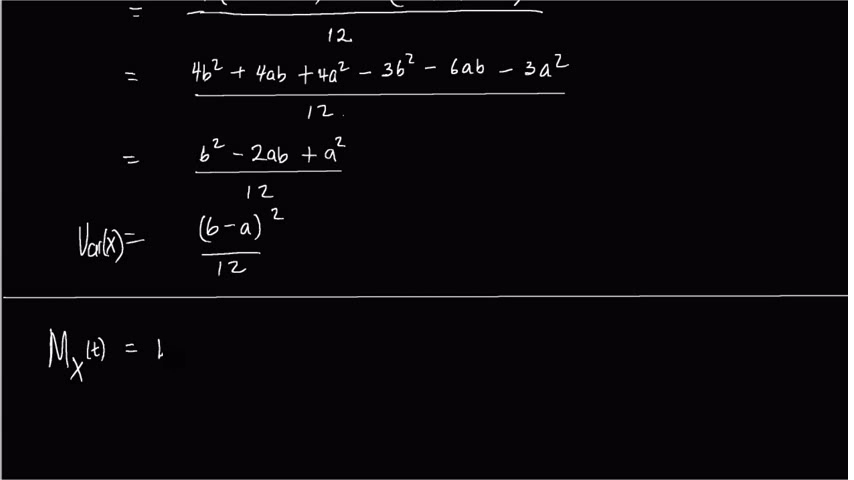 =
12
= 4b² + 4ab + 4a² − 3b² − 6ab − 3a²
12
= b² − 2ab + a²
12
Var(x) = (b−a)²
12
M_X(t) =